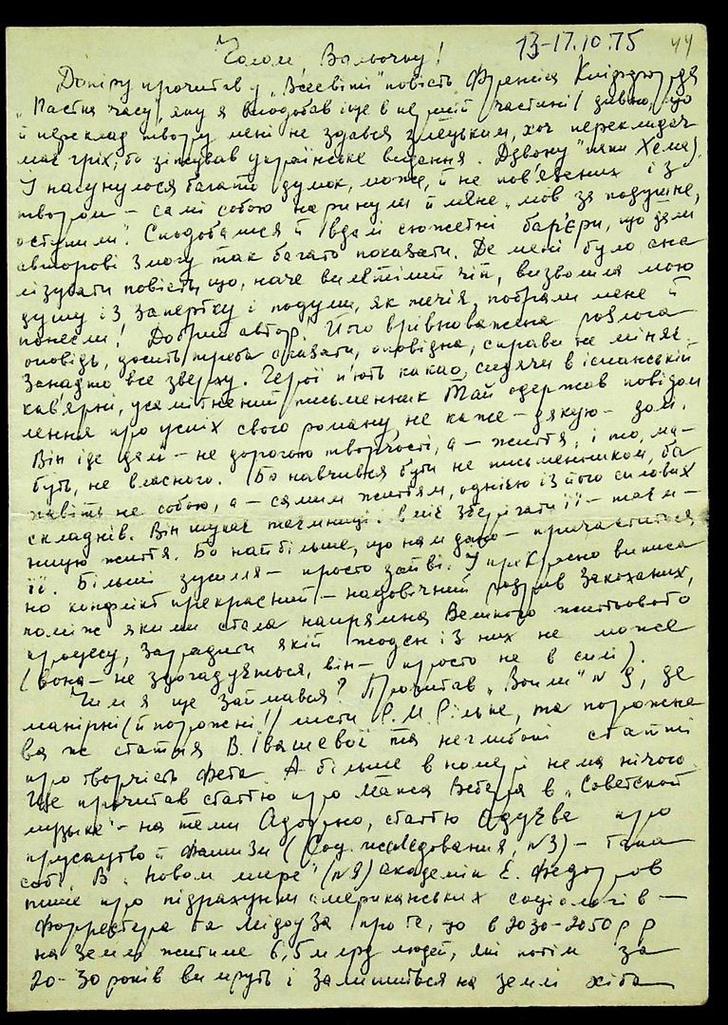 13-17.10.75 44
Чолом Вальочку!
Допіру прочитав у „Всесвіті" повість Френсіса
„Пастка часу", яку я вподобав іще в першій частині (дивно, що
й переклад твору мені не здався кепським, хоч перекладач
має гріх: бо зіпсував українське видання „Дзвону" папи Хема).
І насунулося багато думок, може, й не пов'язаних із
твором — самі собою наринули й мене „мов за подушне,
оступили". Сподобалися й вдалі сюжетні бар'єри, що дали
авторові змогу так багато показати. Де мені було ана
лізувати повість, що, наче хтій, визволила мою
душу із запертку і подуми, як течія, побрали мене й
понесли! Добрий автор! Його врівноважена розлога
оповідь, досить, треба сказати, оповідна, справи не міняє.
Занадто все зверху. Герої п'ють какао, сидячи в іспанській
кав'ярні, усамітнений письменник Тай одержав повідом
лення про успіх свого роману, не каже — дякую — долі.
Він іде далі — не дорогою творчості, а — життя, і то, ма-
буть, не власного. Бо навчився бути не письменником, ба
навіть не собою, а — самим життям, однією із його силових
складнів. Він шукає таємниці, вміє зберігати її — таєм-
ницю життя. Бо найбільше, що нам дано — причаститися
її. Більші зусилля — просто зайві. І прекрасно виписа
но конфлікт прекрасний — надвічний розрив закоханих,
поміж якими стала напрямна Великого життьового
процесу, зарадити якій жоден із них не може
(вона — не здогадується, він — просто не в силі).
Чим я ще займався? Прочитав „Вопли" № 9, де
манірні (й порожні!) листи Р. М. Рільке, та порожня
ва ж стаття В. Івашевої та неглибокі статті
про творчість Фета. А більше в номері нема нічого.
Ще прочитав статтю про Макса Вебера в „Советской
музыке" — на теми Адорно, статтю Одуєва про
пруссацтво й фашизм (Соц. исследования, № 3) — така
собі. В „Новом мире" (№ 9) академік Є. Федоров
пише про підрахунки американських соціологів —
Форрестера та Мідоуза про те, що в 2030-2050 рр
на землі житиме 6,5 млрд людей, які потім за
20-30 років вимруть і залишиться на землі хіба